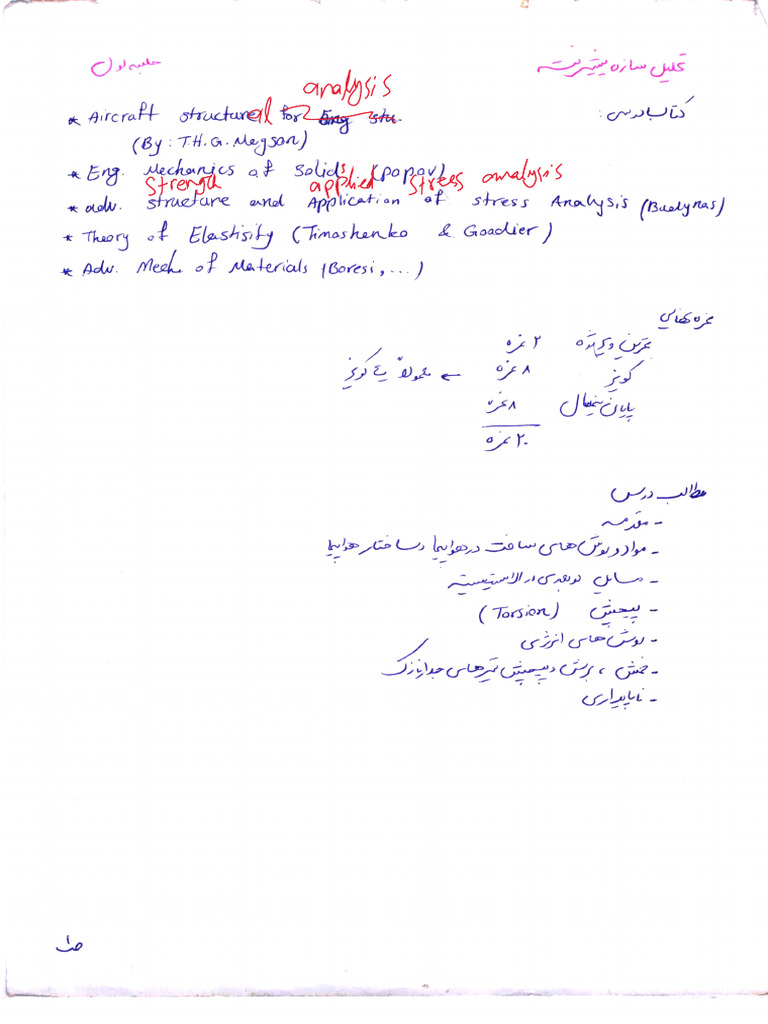 تحلیل سازه پیشرفته
جلسه اول
کتاب درسی:
analysis
* Aircraft structureal for Eng stu.
(By: T.H.G. Megson)
* Eng. Mechanics of Solids (popov)
Strength applied stress analysis
* adv. structure and Application of stress Analysis (Budynas)
* Theory of Elastisity (Timoshenko & Goodier)
* Adv. Mech. of Materials (Boresi, ...)
تمرین و پروژه ۲ نمره
کوئیز ۸ نمره ← معمولاً کوئیز
پایان نیمسال ۸ نمره
۲۰ نمره
مطالب درس
- مقدمه
- مواد و روش های ساخت در هواپیما و ساختار هواپیما
- مسایل دو بعدی در الاستیسیته
- پیچش (Torsion)
- روش های انرژی
- خمش ، برش و پیچش تیرهای جدار نازک
- ناپایداری
ص۱